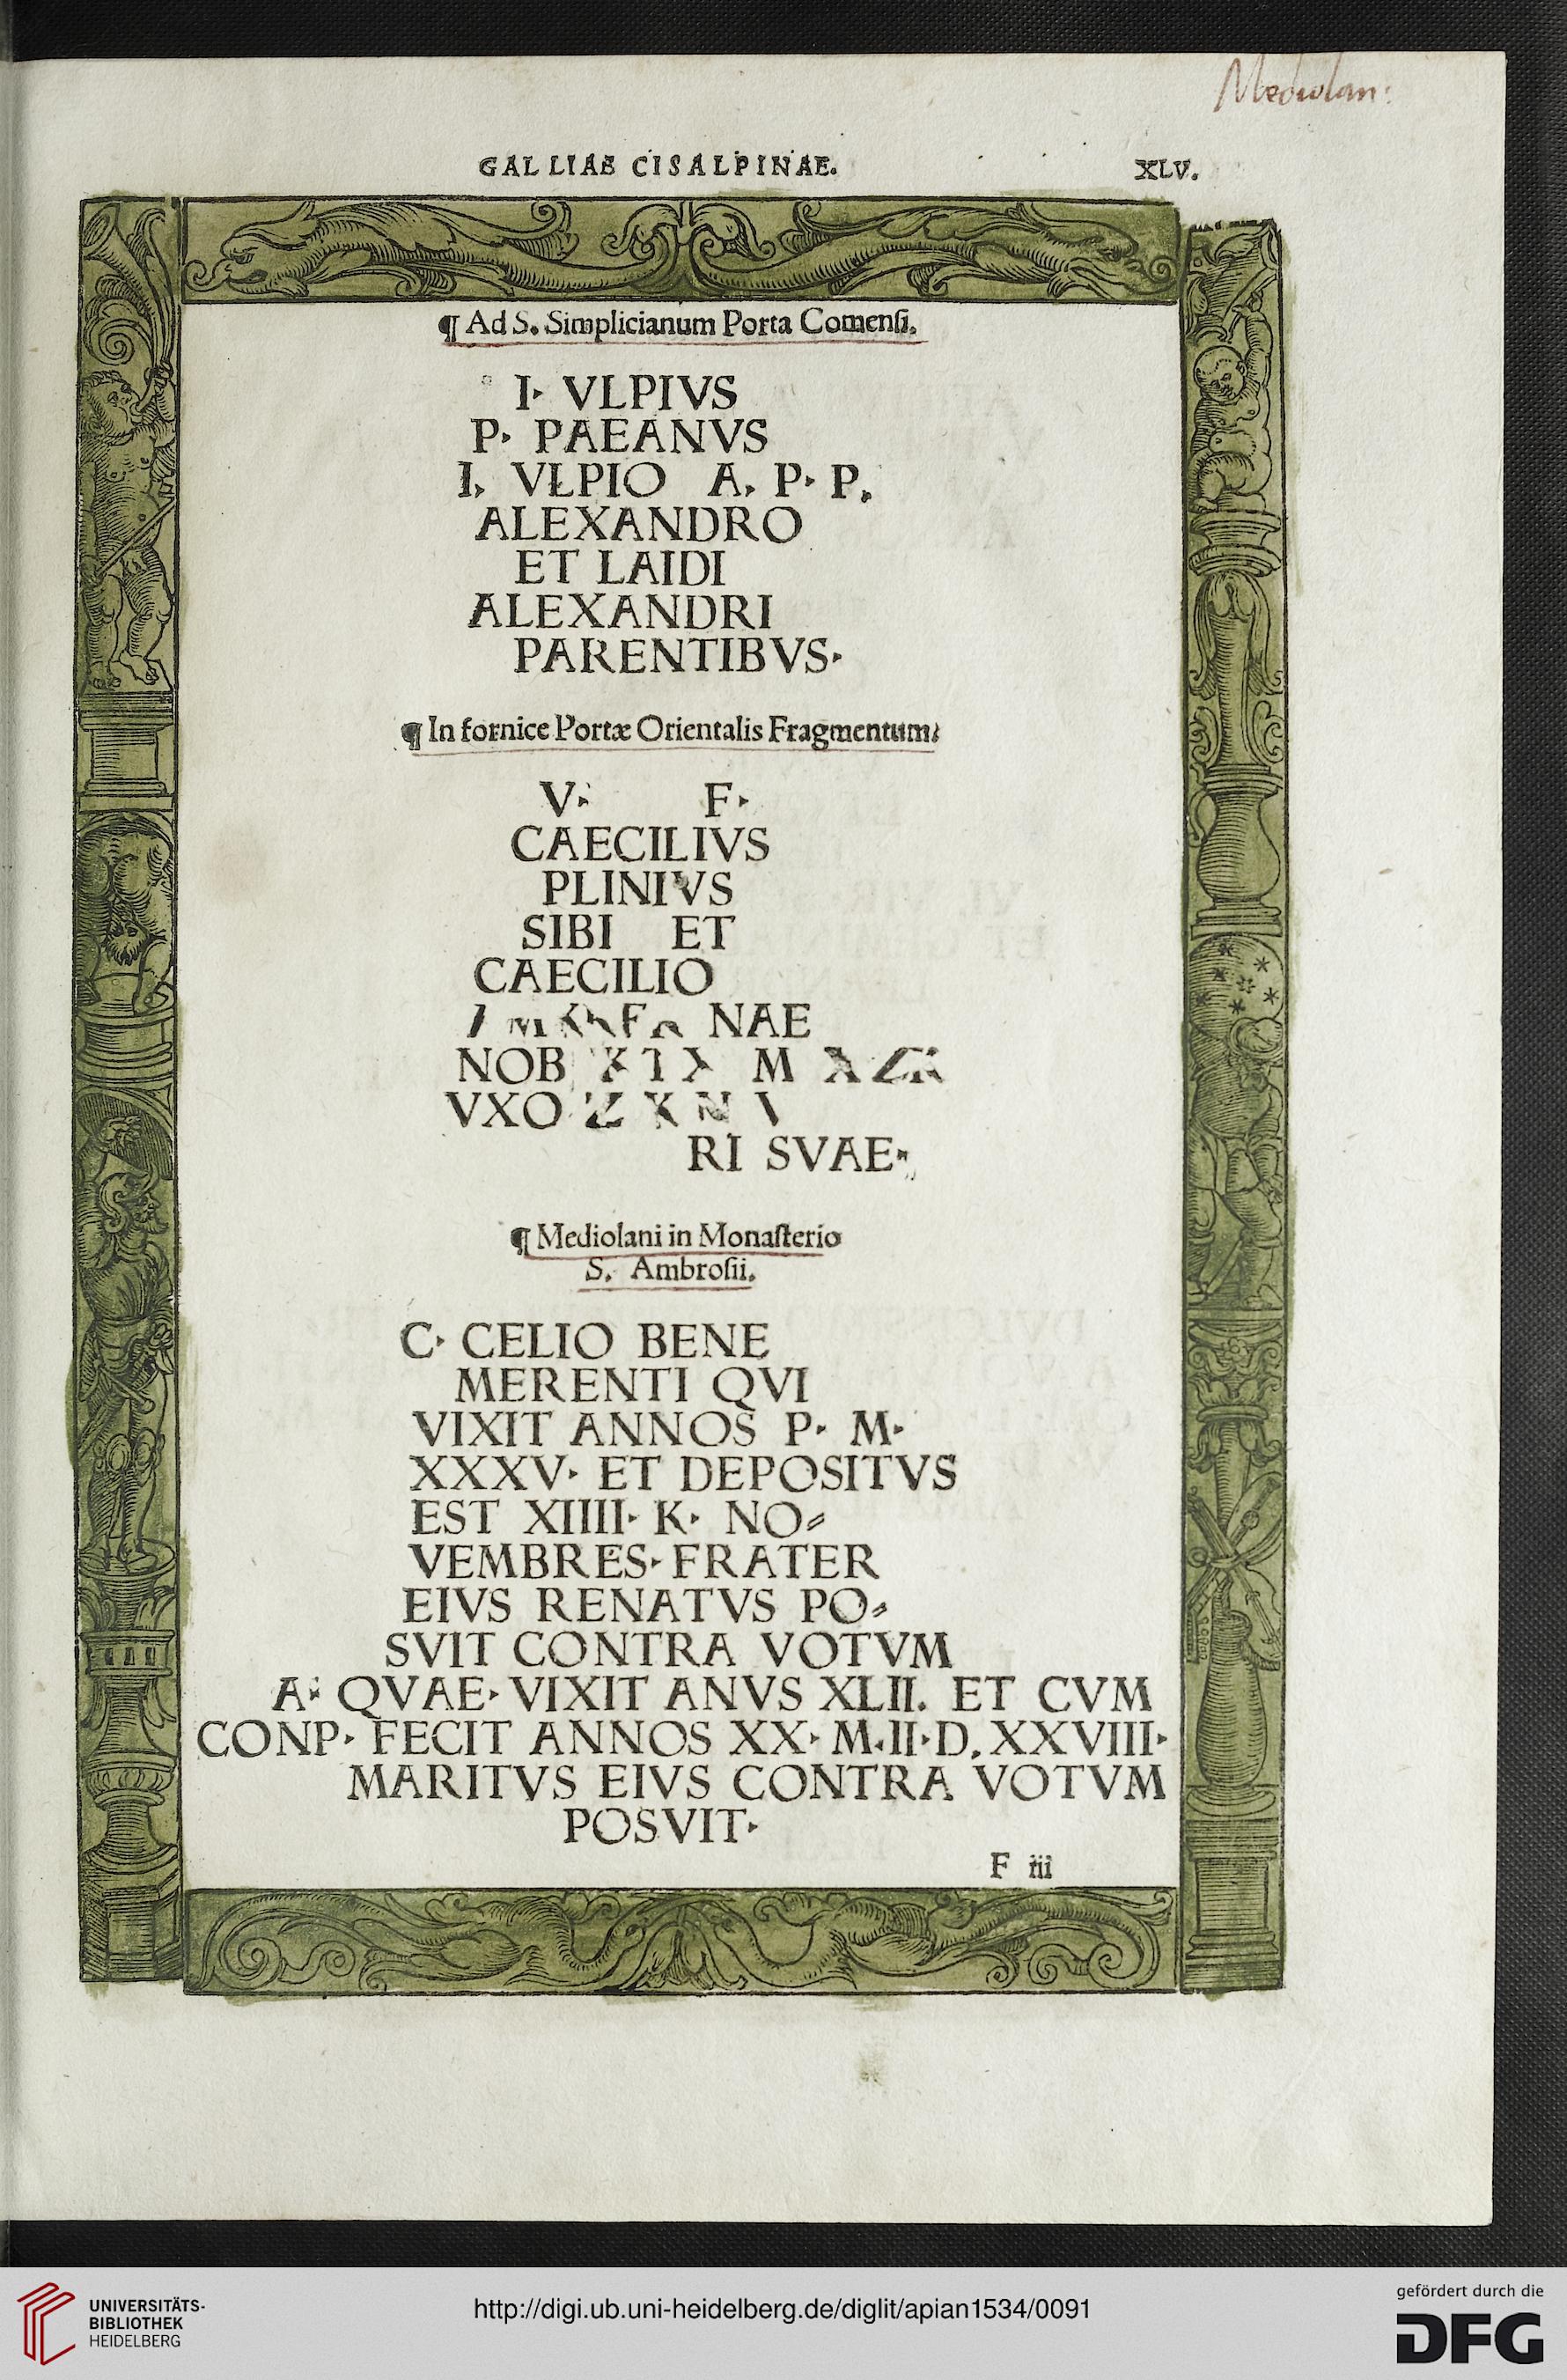 Mediolan:
GALLIAE CISALPINAE. XLV.
¶ Ad S. Simplicianum Porta Comenſi.
I· VLPIVS
P· PAEANVS
I, VLPIO A, P· P,
ALEXANDRO
ET LAIDI
ALEXANDRI
PARENTIBVS·
¶ In fornice Portæ Orientalis Fragmentum:
V· F·
CAECILIVS
PLINIVS
SIBI ET
CAECILIO
NAE
NOB M
VXO
RI SVAE·
¶ Mediolani in Monaſterio
S. Ambroſii.
C· CELIO BENE
MERENTI QVI
VIXIT ANNOS P· M·
XXXV· ET DEPOSITVS
EST XIIII· K· NO⸗
VEMBRES· FRATER
EIVS RENATVS PO⸗
SVIT CONTRA VOTVM
A· QVAE· VIXIT ANVS XLII. ET CVM
CONP· FECIT ANNOS XX· M·II·D.XXVIII·
MARITVS EIVS CONTRA VOTVM
POSVIT·
F iii
UNIVERSITÄTS-
BIBLIOTHEK
HEIDELBERG
http://digi.ub.uni-heidelberg.de/diglit/apian1534/0091
gefördert durch die
DFG